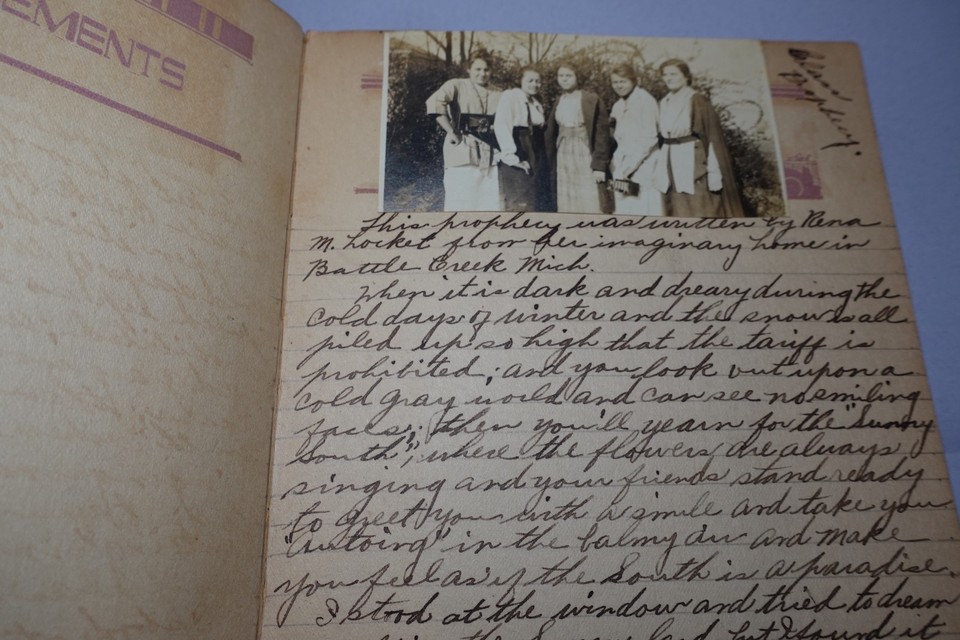 EMENTS
Class
Prophecy.
This prophecy was written by Rena
M. Locket from her imaginary home in
Battle Creek Mich.
When it is dark and dreary during the
cold days of winter and the snow is all
piled up so high that the tariff is
prohibited; and you look out upon a
cold gray world and can see no smiling
faces; then you'll yearn for the "Sunny
South", where the flowers are always
singing and your friends stand ready
to greet you with a smile and take you
"Autoing" in the balmy air and make
you feel as if the South is a paradise.
I stood at the window and tried to dream
but I found it